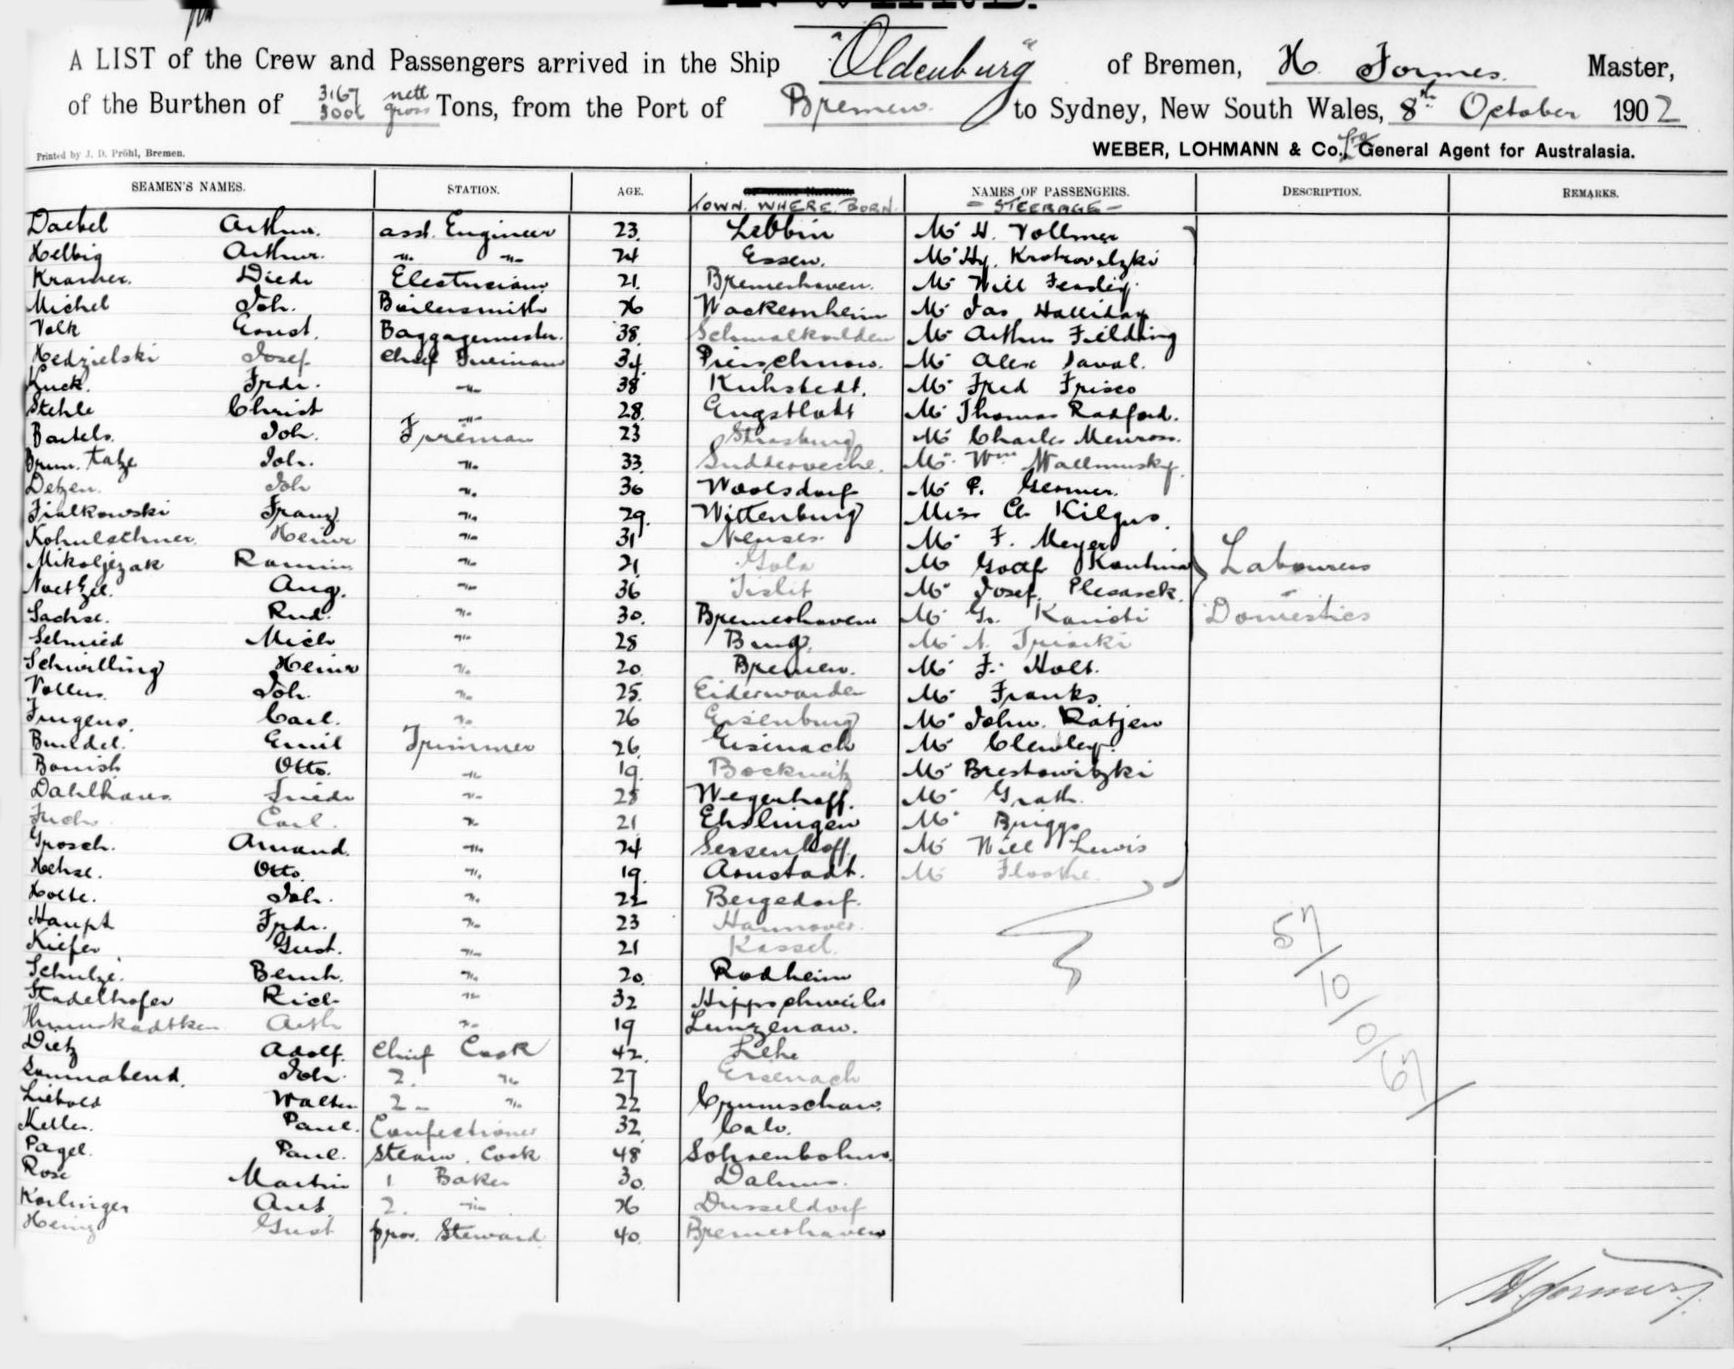 A LIST of the Crew and Passengers arrived in the Ship "Oldenburg" of Bremen, H. Formes Master,
of the Burthen of 3167 nett gross Tons, from the Port of Bremen to Sydney, New South Wales, 8th October 1902
Printed by J. D. Pröhl, Bremen.
WEBER, LOHMANN & Co. General Agent for Australasia.
SEAMEN'S NAMES. STATION. AGE. TOWN WHERE BORN NAMES OF PASSENGERS. DESCRIPTION. REMARKS.
- STEERAGE -
Daebel Arthur. asst. Engineer 23. Lebbin Mr H. Vollmer
Helbig Arthur. " " 24 Essen. Mr Hy. Krotrovolzki
Kramer. Diedr Electrician 21. Bremerhaven. Mr Will
Michel Joh. Boilersmith 26 Wackernheim Mr Jas Halliday
Volk Ernst. Baggagemaster. 38. Schmalkalden Mr Arthur Fielding
Kedzielski Josef Chief Fireman 34. Mr Alex
Buck. Frdr. " 38 Kuhstedt. Mr Fred Frisco
Stehle Christ " 28. Engstlatt Mr Thomas Radford.
Bartels. Joh. Fireman 23 Strasburg Mr Charles
Joh. " 33. Mr Wm
Detzen. Joh " 36 Woolsdorf Mr P. Germer.
Fialkowski Franz " 29. Wittenburg Miss A. Kilgus.
Heinr " 31 Neuses. Mr F. Meyer
Mikoljezak " 21 Gola Mr Labourers
Noetzel. Aug. " 36 Tislit Mr Josef
Sachse. Rud. " 30. Bremerhaven Mr Domestics
Schmied Mich " 28 Burg. Mr
Schwilling Heinr " 20 Bremen. Mr F. Holt.
Joh. " 25. Eiderwarden Mr Franks.
Carl. " 26 Eisenburg Mr John. Ratjen
Bundel. Emil Trimmer 26. Eisenach Mr Clewley.
Bonish Otto. " 19. Mr Brestowitzki
Dahlhaus Friedr " 28 Wegerhoff. Mr Grath.
Fuchs Carl. " 21 Ehslingen Mr Briggs
Grosch. Amand. " 24 Sessenhoff. Mr Will Lewis
Otto. " 19. Arnstadt. Mr
Holte. Joh. " 22 Bergedorf.
Haupt Frdr. " 23 Hannover.
Kiefer Gust. " 21 Kassel. 57
Schulze. Bernh. " 20. Rodheim 10
Stadelhofer Rich " 32
Arth " 19 Lunzenau. 0
Dietz Adolf. Chief Cook 42. Lehe 67
Sonnabend. Joh. 2. " 27 Eisenach
Liebold Walter 2 " 22
Keller. Paul. Confectioner 32 Calv.
Pagel. Paul. Steam. Cook 48
Rose Martin 1 Baker 30.
Korlinger Ant. 2. " 26 Dusseldorf
Heinz Gust prov. Steward. 40. Bremerhaven
H. Formes.